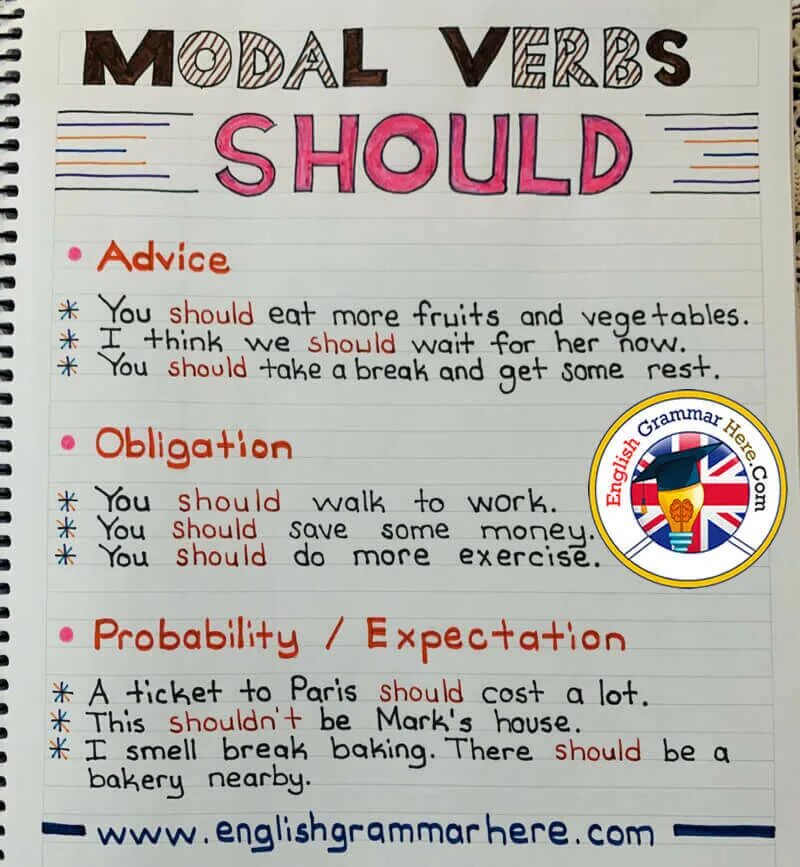 MODAL VERBS
SHOULD
• Advice
* You should eat more fruits and vegetables.
* I think we should wait for her now.
* You should take a break and get some rest.
English Grammar Here.Com
• Obligation
* You should walk to work.
* You should save some money.
* You should do more exercise.
• Probability / Expectation
* A ticket to Paris should cost a lot.
* This shouldn't be Mark's house.
* I smell break baking. There should be a
bakery nearby.
www.englishgrammarhere.com